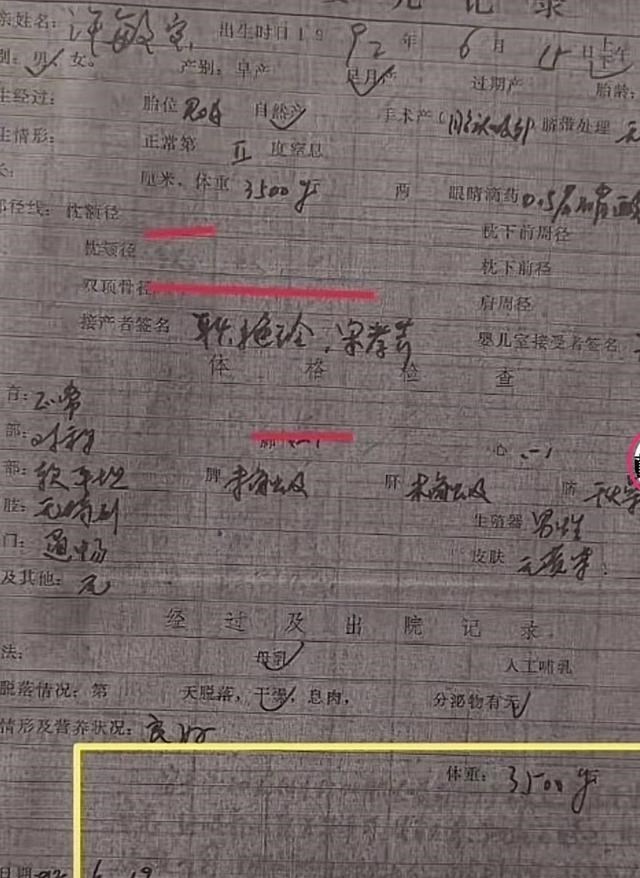 儿记录
亲姓名: 许敏 出生时日19 92 年 6 月 15 日上下午
别: 男、女。 产别: 早产 足月产 过期产 胎龄:
生经过: 胎位 自然产 手术产( ) 脐带处理 无
生情形: 正常第 II 度窒息
长: 厘米、体重 3500克 两 眼睛滴药 0.5%
部径线: 枕额径 枕下前周径
枕颏径 枕下前径
双顶骨径 肩周径
接产者签名 婴儿室接受者签名
体格检查
育: 正常
部: 对称 肺 (-) 心 (-)
部: 软平坦 脾 未触及 肝 未触及 脐 干燥
肢: 无畸形 生殖器 男性
门: 通畅 皮肤 无黄染
及其他: 无
经过及出院记录
法: 母乳 人工哺乳
脱落情况: 第 天脱落, 干燥, 息肉, 分泌物有无
情形及营养状况: 良好
体重: 3500克
日期 92. 6. 19